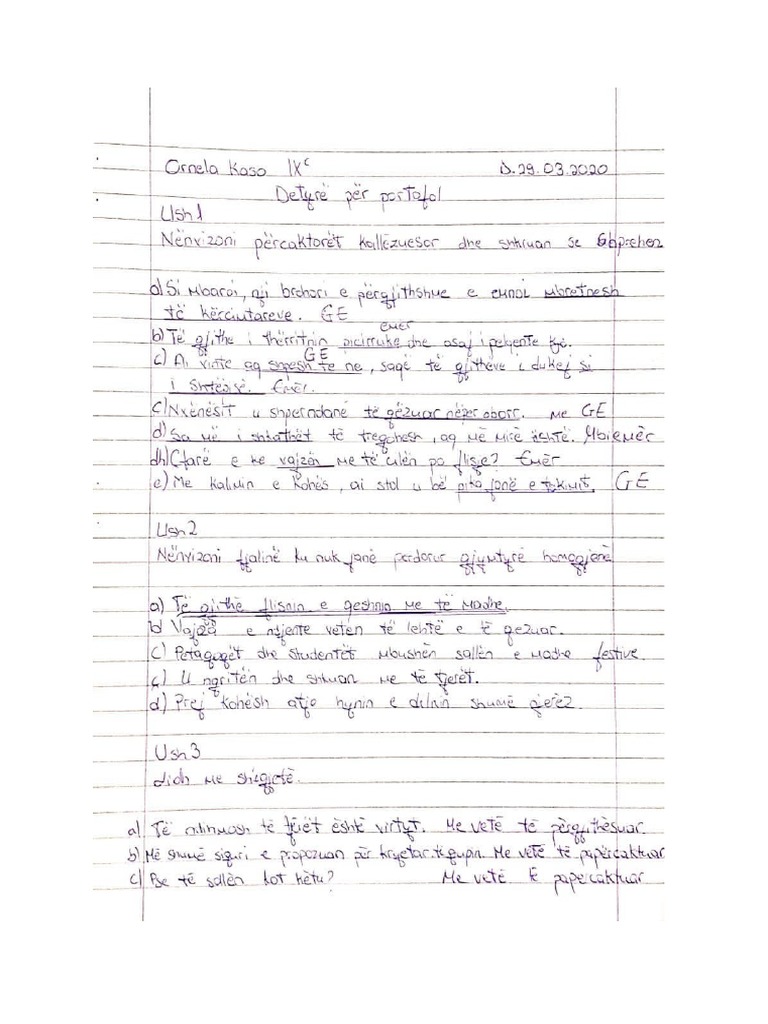 Ornela Kaso IXc D.29.03.2020
Detyrë për portofol
Ush1
Nënvizoni përcaktorët kallëzuesor dhe shkruan se shprehen
a) Si mbaroi, nji brohori e përgjithshme e emnoi mbretnesh
të kërcimtareve. GE
emër
b) Të gjithe i thërritnin picirruke dhe asaj i pelqente
GE
c) Ai vinte aq shpesh te ne, saqë të gjithëve i dukej si
i shtëpisë. Emër.
ç) Nxënësit u shpërndanë të gëzuar nëpër oborr. me GE
d) Sa më i shkathët të tregohesh, aq më mirë është. Mbiemër
dh) Cfarë e ke vajzën me të cilën po flisje? Emër
e) Me kalimin e kohës, ai stol u bë pika jonë e takimit. GE
Ush2
Nënvizoni fjalinë ku nuk janë perdorur gjymtyrë homogjene
a) Të gjithë flisnin e qeshnin me të madhe.
b) Vajza e ndjente veten të lehtë e të gezuar.
c) Petagogët dhe studentët mbushën sallën e madhe festive.
ç) U ngritën dhe shkuan me të tjerët.
d) Prej kohësh atjo hynin e dilnin shumë njerëz.
Ush3
Lidh me shigjetë.
a) Të ndihmosh të tjerët është virtyt. Me vetë të përgjithësuar.
b) Më shumë siguri e propozuan për kryetar të grupin. Me vetë të papërcaktuar
c) Pse të sollën kot këtu? Me vetë të papercaktuar